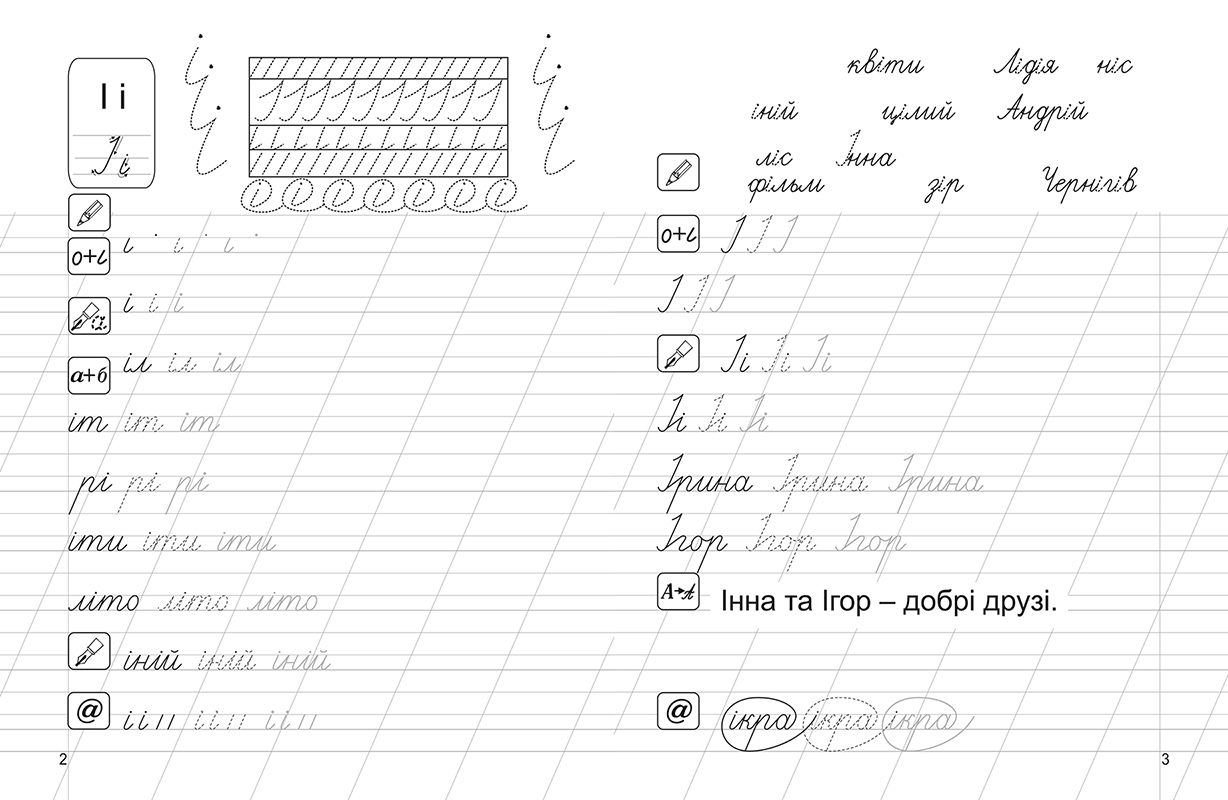 І і
І і
о+і
і і і
і і і
а+б
іл іл іл
іт іт іт
рі рі рі
іти іти іти
літо літо літо
іній іній іній
@
іі іı іі іı іі іı
2
квіти Лідія ніс
іній цілий Андрій
ліс Інна
фільм зір Чернігів
о+і
І І І
І І І
Іі Іі Іі
Іі Іі Іі
Ірина Ірина Ірина
Ігор Ігор Ігор
А→А
Інна та Ігор – добрі друзі.
@
ікра ікра ікра
3